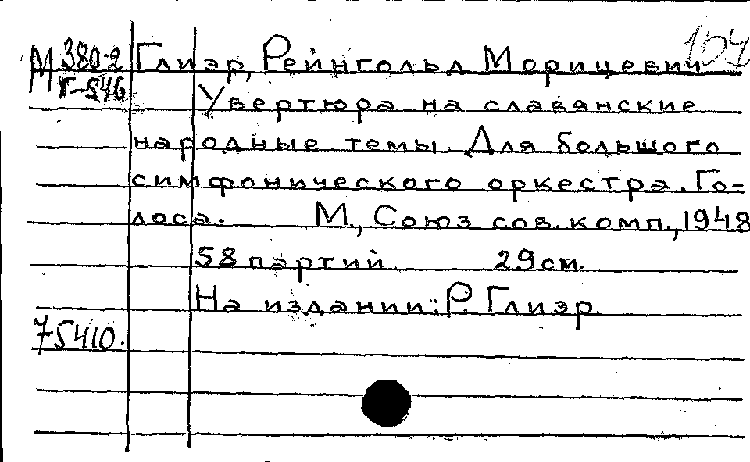 М 380-2 Глиэр, Рейнгольд Морицевич 157
Г-546 Увертюра на славянские
народные темы. Для большого
симфонического оркестра. Го-
лоса. М., Союз сов. комп., 1948
58 партий 29 см.
На издании: Р. Глиэр
75410.